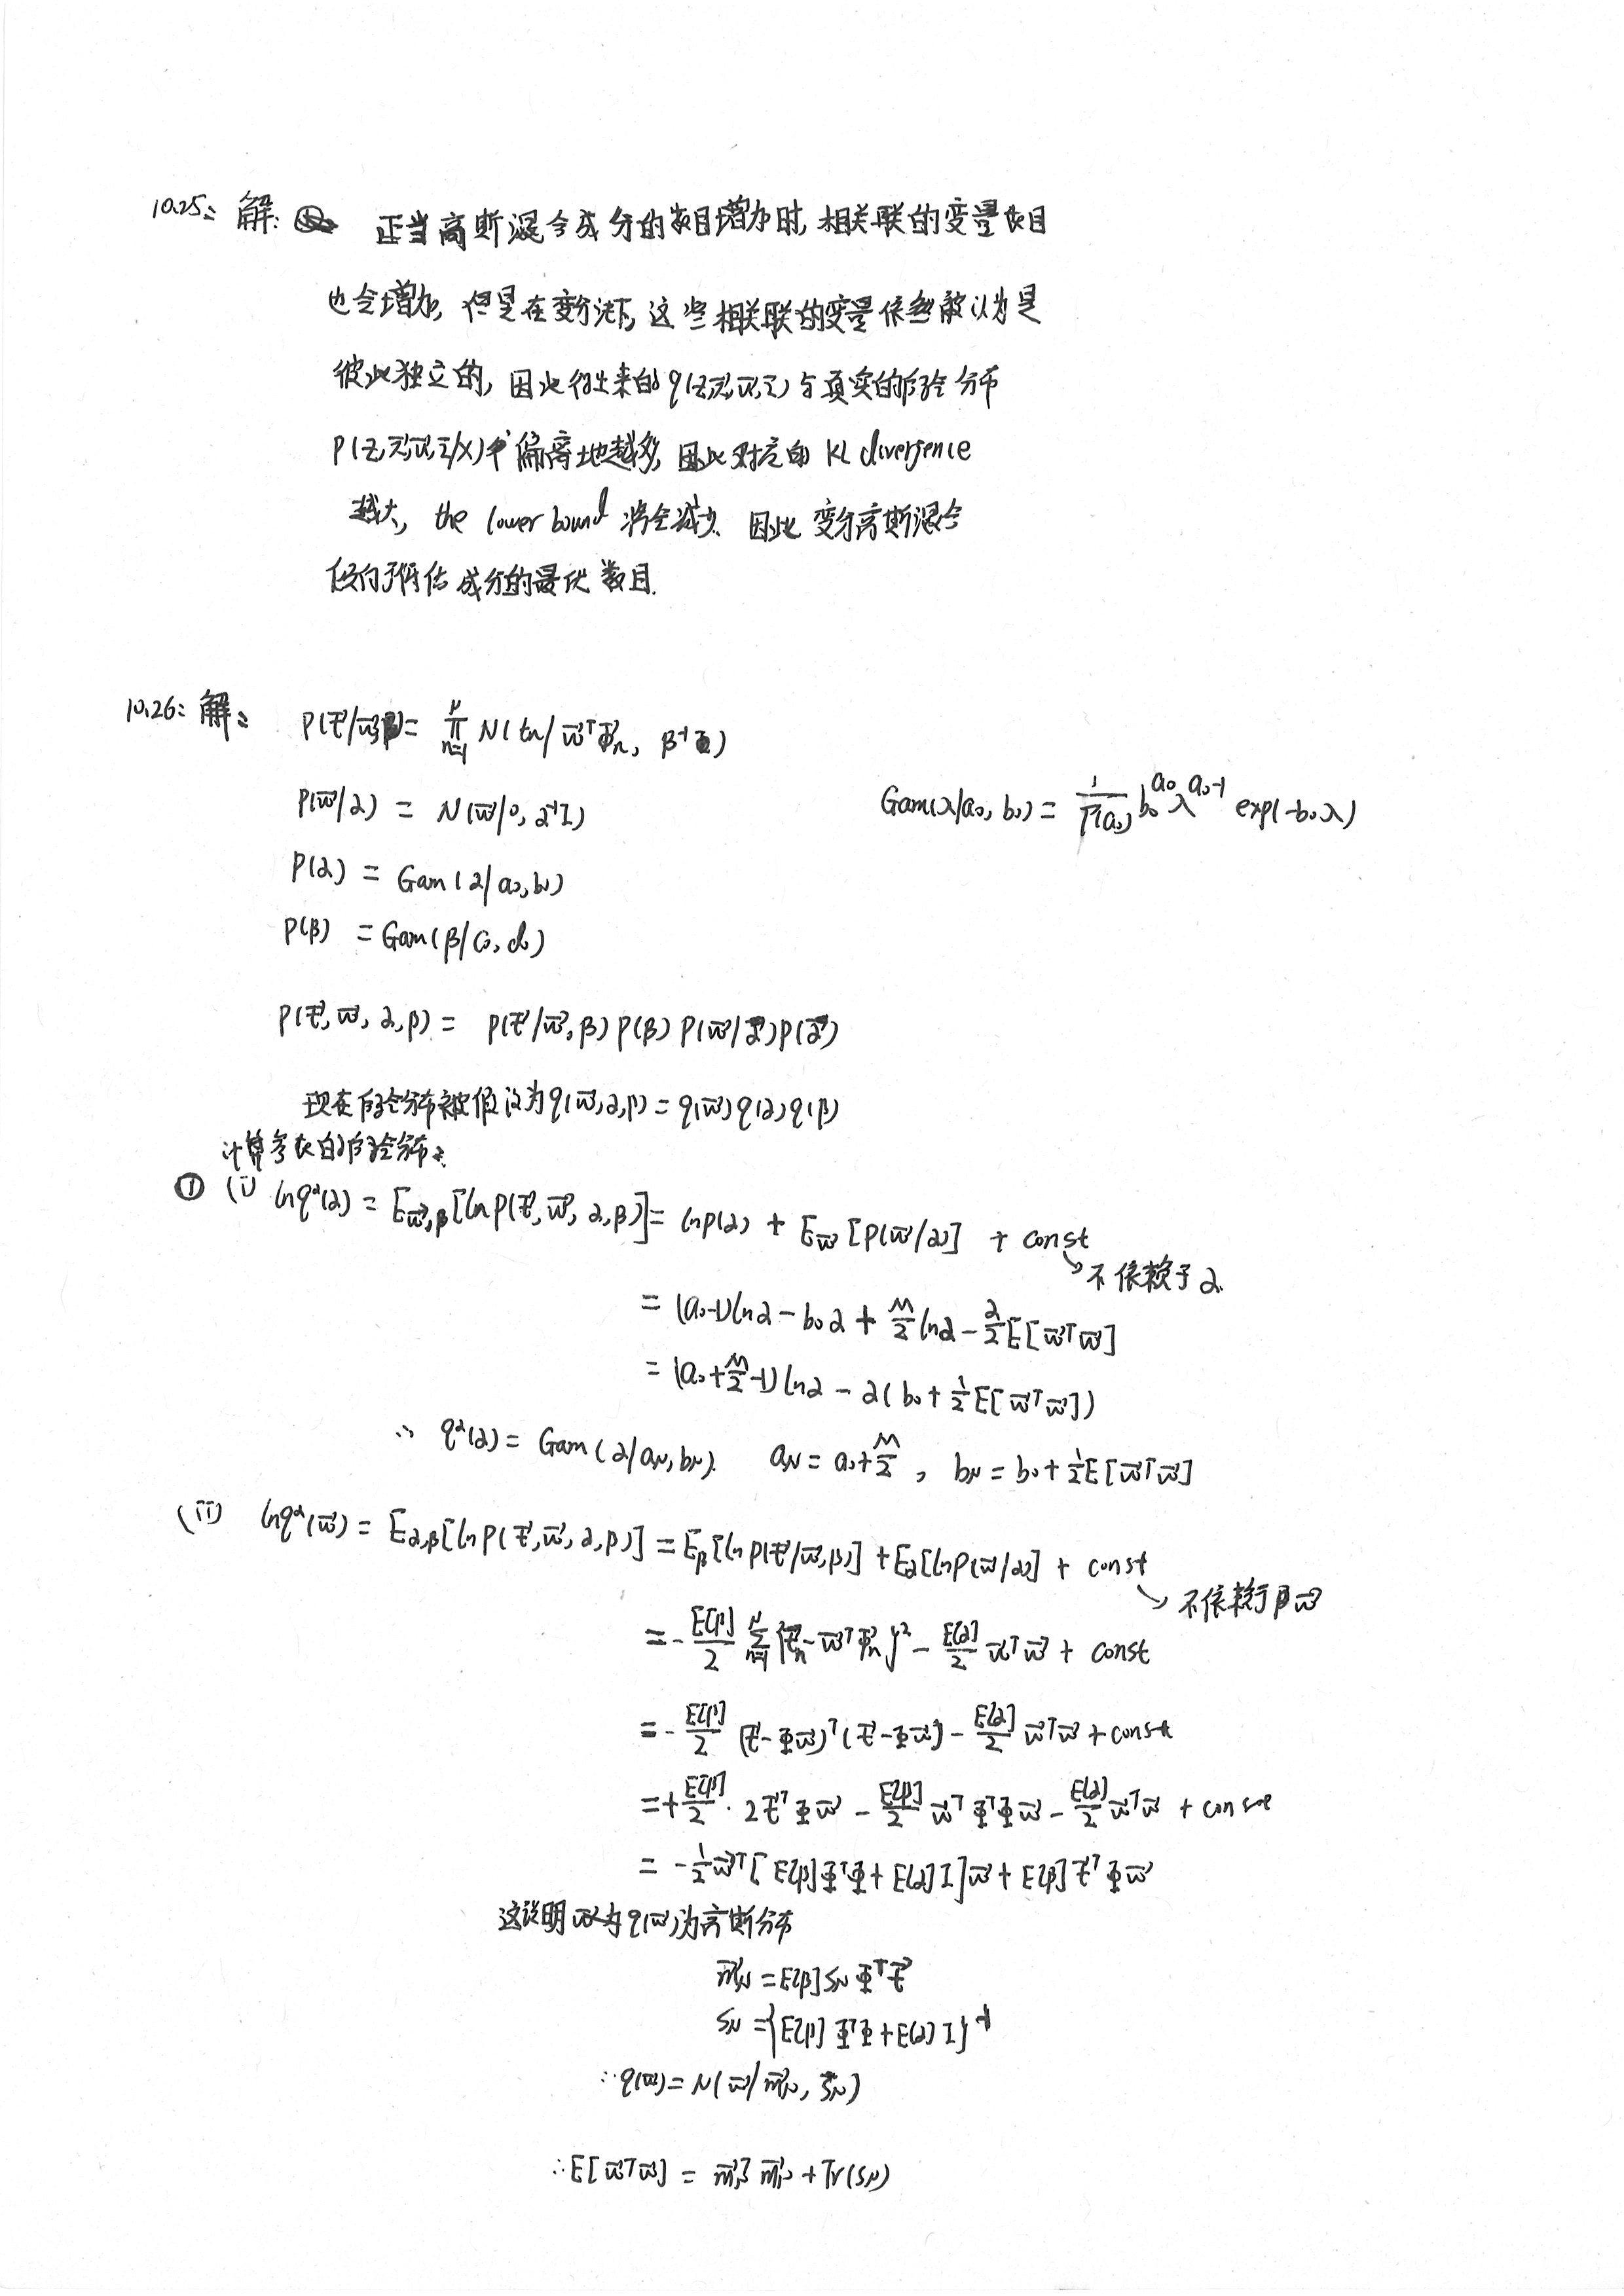 10.25: 解: 正当高斯混合成分的数目增加时, 相关联的变量数目
也会增加, 但是在变分法下, 这些相关联的变量依然被认为是
彼此独立的, 因此得出来的 q(z, π⃗, μ⃗, Σ) 与真实的后验分布
P(z, π⃗, μ⃗, Σ/X) 偏离地越多, 因此对应的 KL divergence
越大, the lower bound 将会减少. 因此 变分高斯混合
倾向于低估 成分的最优 数目.
10.26: 解:
P(t⃗/w⃗, β) = ∏_{n=1}^{N} N(tn/w⃗ᵀΦ⃗n, β⁻¹)
P(w⃗/α) = N(w⃗/0, α⁻¹I)
Gam(λ/a₀, b₀) = 1/Γ(a₀) b₀^{a₀} λ^{a₀-1} exp(-b₀λ)
P(α) = Gam(α/a₀, b₀)
P(β) = Gam(β/c₀, d₀)
P(t⃗, w⃗, α, β) = P(t⃗/w⃗, β) P(β) P(w⃗/α) P(α)
现在后验分布被假设为 q(w⃗, α, β) = q(w⃗) q(α) q(β)
计算参数的后验分布:
① (i) ln q*(α) = E_{w⃗,β}[ln P(t⃗, w⃗, α, β)] = ln p(α) + E_{w⃗}[P(w⃗/α)] + const
↘ 不依赖于 α.
= (a₀-1) ln α - b₀α + M/2 ln α - α/2 E[w⃗ᵀw⃗]
= (a₀ + M/2 - 1) ln α - α(b₀ + 1/2 E[w⃗ᵀw⃗])
∴ q*(α) = Gam(α/aN, bN). aN = a₀ + M/2, bN = b₀ + 1/2 E[w⃗ᵀw⃗]
(ii) ln q*(w⃗) = E_{α,β}[ln P(t⃗, w⃗, α, β)] = E_β[ln P(t⃗/w⃗, β)] + E_α[ln P(w⃗/α)] + const
↘ 不依赖于 w⃗
= - E[β]/2 ∑_{n=1}^{N} {tn - w⃗ᵀΦ⃗n}² - E[α]/2 w⃗ᵀw⃗ + const
= - E[β]/2 (t⃗ - Φw⃗)ᵀ(t⃗ - Φw⃗) - E[α]/2 w⃗ᵀw⃗ + const
= + E[β]/2 · 2t⃗ᵀΦw⃗ - E[β]/2 w⃗ᵀΦᵀΦw⃗ - E[α]/2 w⃗ᵀw⃗ + const
= - 1/2 w⃗ᵀ[E[β]ΦᵀΦ + E[α]I]w⃗ + E[β]t⃗ᵀΦw⃗
这说明 q(w⃗) 为高斯分布
m⃗N = E[β] SN Φᵀt⃗
SN = {E[β]ΦᵀΦ + E[α]I}⁻¹
∴ q(w⃗) = N(w⃗/m⃗N, SN)
∴ E[w⃗ᵀw⃗] = m⃗Nᵀ m⃗N + Tr(SN)